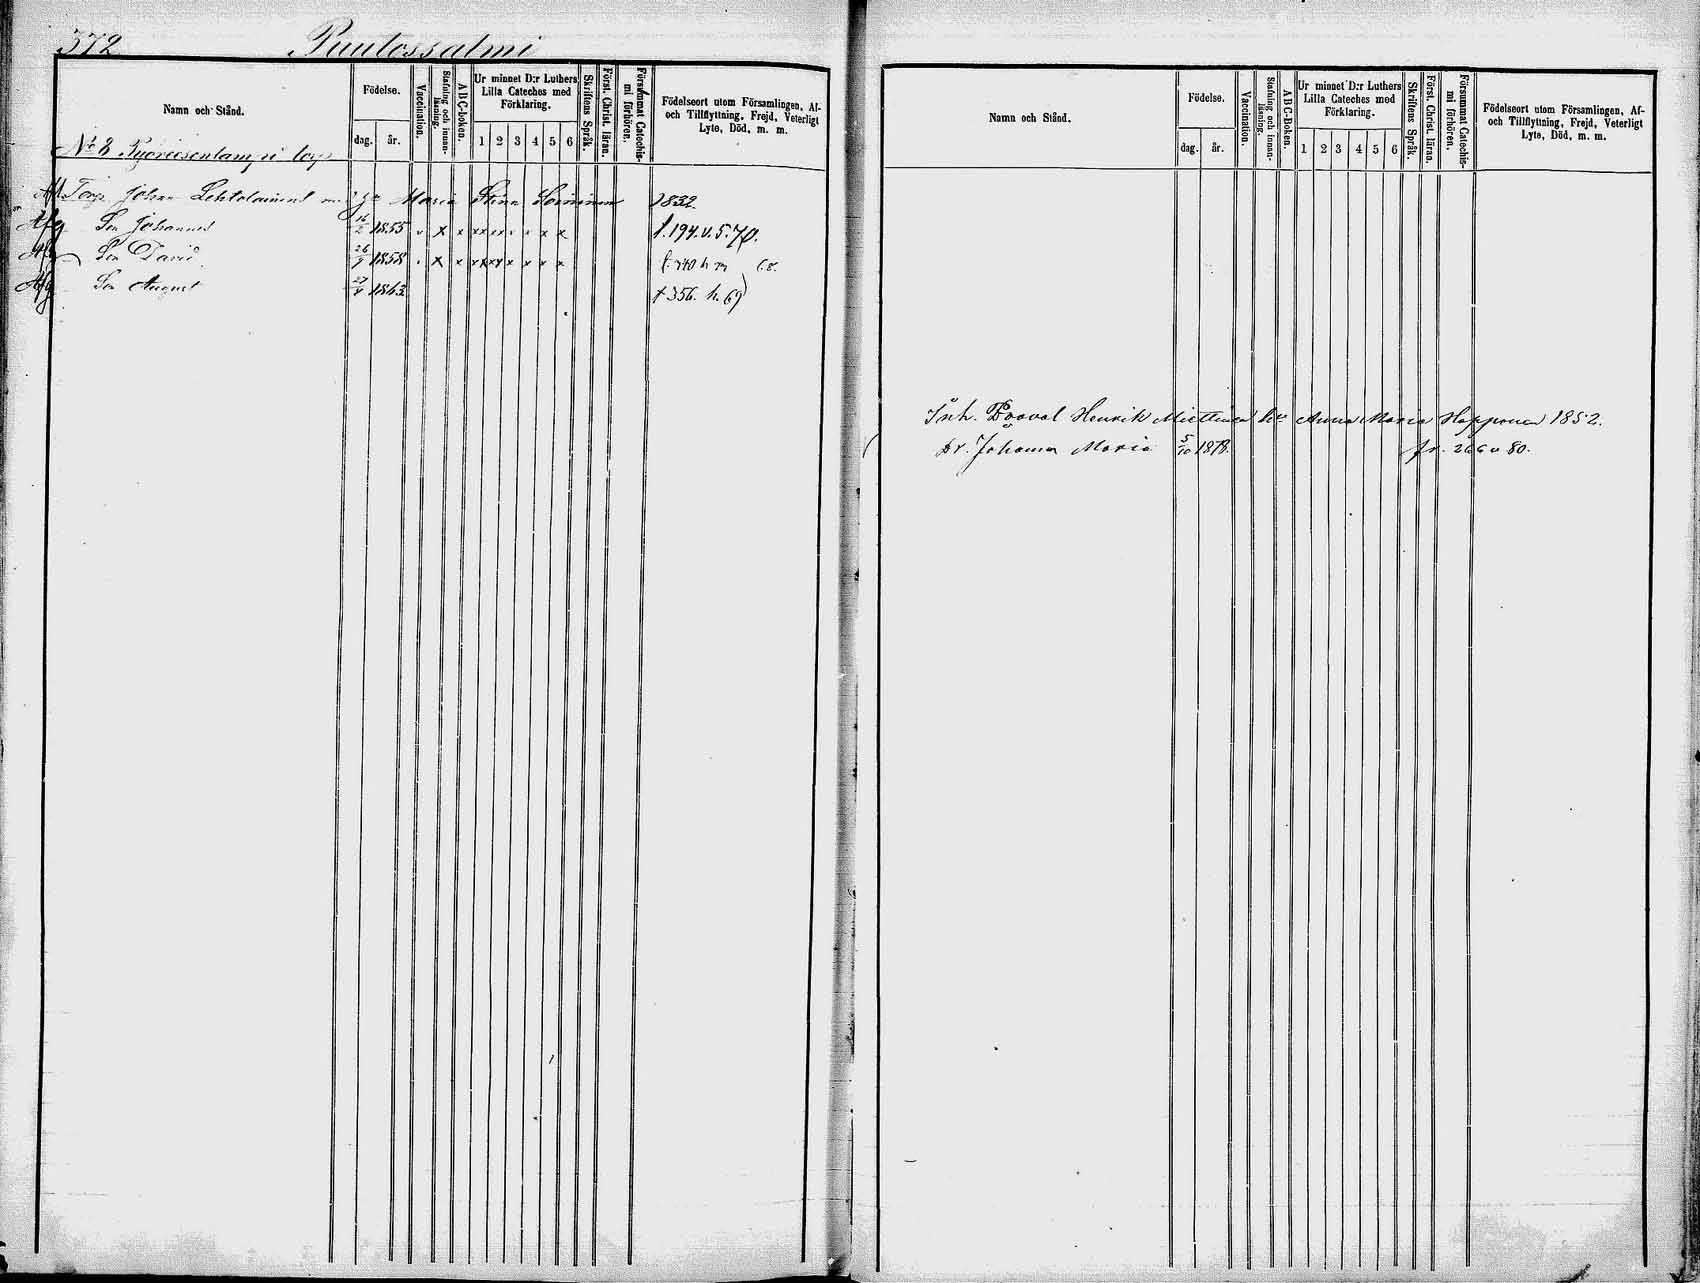 372 Puutossalmi
Namn och Stånd.
Födelse.
dag. år.
Vaccination.
Stafning och innan-läsning.
ABC-boken.
Ur minnet D:r Luthers Lilla Cateches med Förklaring.
1 2 3 4 5 6
Skriftens Språk.
Först. Christ. läran.
Försummat Catechis-mi förhören.
Födelseort utom Församlingen, Af-
och Tillflyttning, Frejd, Veterligt
Lyte, Död, m. m.
No 8
Johan Maria Stina 1832.
Afg Son Johannes 16/2 1855 x x x x x x x x f. 194. v. 5. 70.
Son David 26/9 1858 x x x x x x x x
Afg Son August 27/4 1863 f 356. h. 69
Namn och Stånd.
Födelse.
dag. år.
Vaccination.
Stafning och innan-läsning.
ABC-Boken.
Ur minnet D:r Luthers Lilla Cateches med Förklaring.
1 2 3 4 5 6
Skriftens Språk.
Först. Christ. läran.
Försummat Catechis-mi förhören.
Födelseort utom Församlingen, Af-
och Tillflyttning, Frejd, Veterligt
Lyte, Död, m. m.
Inh. Henrik Miettinen Anna Maria Happonen 1852.
Dr. Johanna Maria 5/10 1878. fr. 266 v 80.